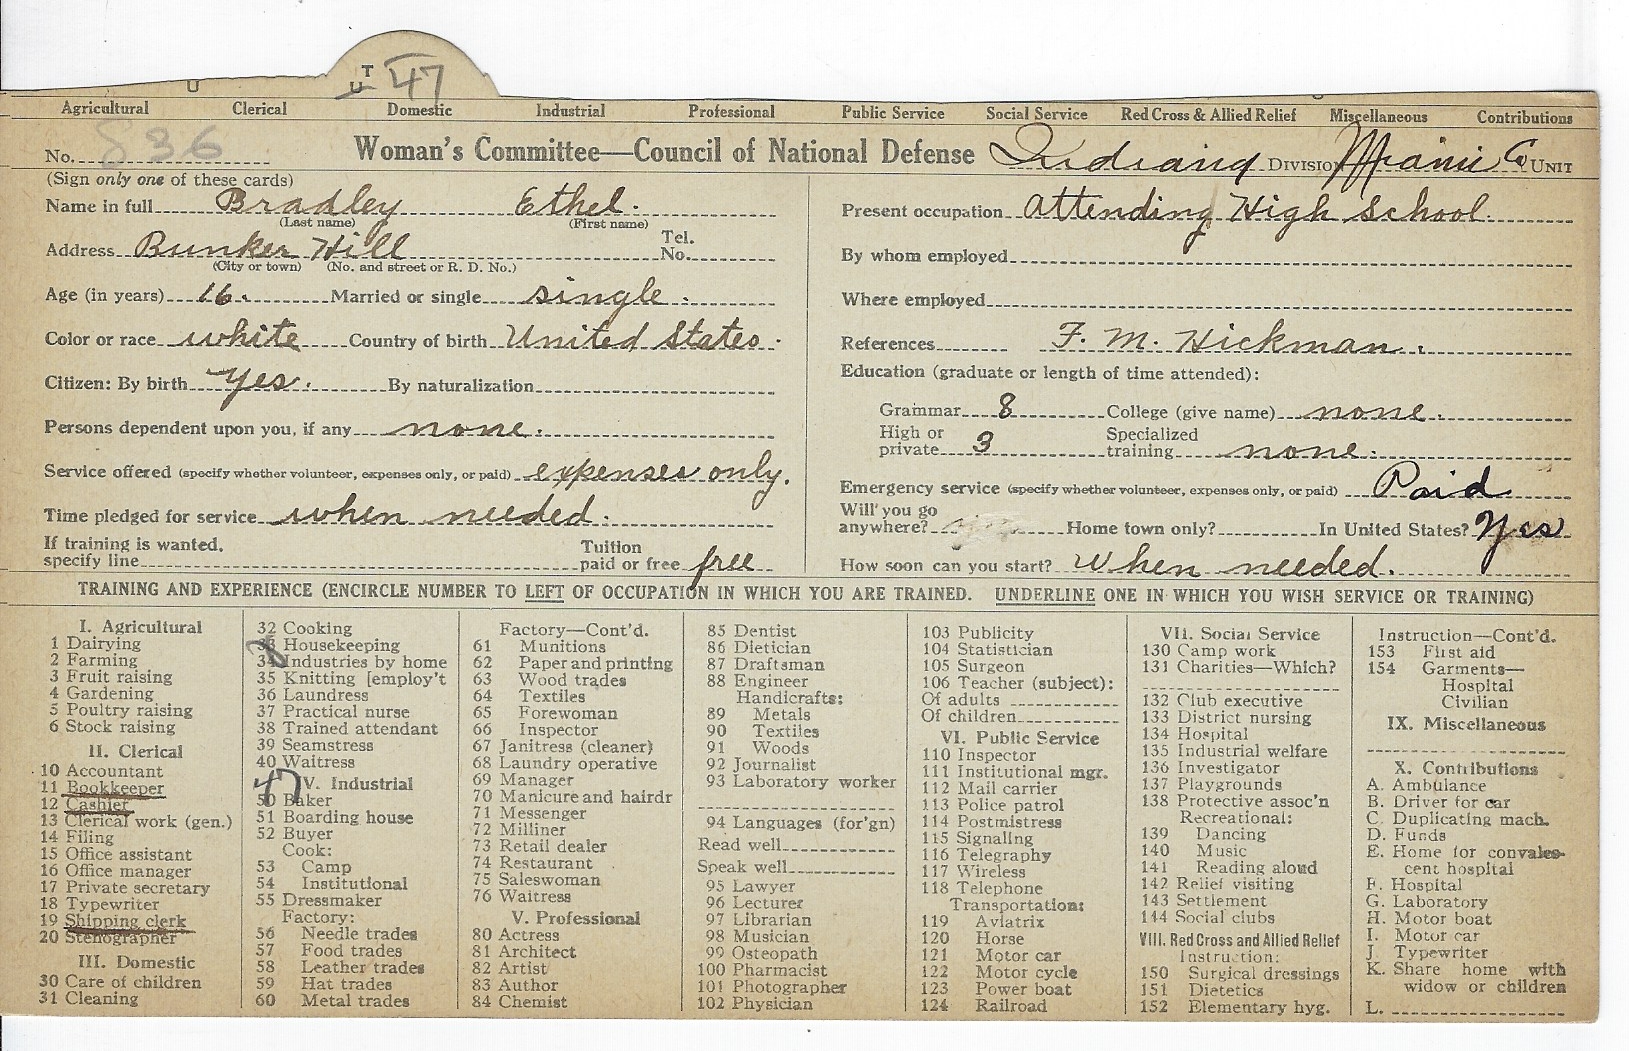 U T U 47
Agricultural Clerical Domestic Industrial Professional Public Service Social Service Red Cross & Allied Relief Miscellaneous Contributions
No. 836 Woman's Committee—Council of National Defense Indiana DIVISION Miami Co UNIT
(Sign only one of these cards)
Name in full Bradley Ethel.
(Last name) (First name)
Address Bunker Hill Tel. No.
(City or town) (No. and street or R. D. No.)
Age (in years) 16. Married or single single.
Color or race white Country of birth United States.
Citizen: By birth yes. By naturalization
Persons dependent upon you, if any none.
Service offered (specify whether volunteer, expenses only, or paid) expenses only.
Time pledged for service when needed.
If training is wanted, specify line Tuition paid or free free
Present occupation Attending High School.
By whom employed
Where employed
References F. M. Hickman.
Education (graduate or length of time attended):
Grammar 8 College (give name) none.
High or private 3 Specialized training none.
Emergency service (specify whether volunteer, expenses only, or paid) Paid
Will you go anywhere? Home town only? In United States? Yes
How soon can you start? When needed.
TRAINING AND EXPERIENCE (ENCIRCLE NUMBER TO LEFT OF OCCUPATION IN WHICH YOU ARE TRAINED. UNDERLINE ONE IN WHICH YOU WISH SERVICE OR TRAINING)
I. Agricultural
1 Dairying
2 Farming
3 Fruit raising
4 Gardening
5 Poultry raising
6 Stock raising
II. Clerical
10 Accountant
11 Bookkeeper
12 Cashier
13 Clerical work (gen.)
14 Filing
15 Office assistant
16 Office manager
17 Private secretary
18 Typewriter
19 Shipping clerk
20 Stenographer
III. Domestic
30 Care of children
31 Cleaning
32 Cooking
33 Housekeeping
34 Industries by home
35 Knitting [employ't
36 Laundress
37 Practical nurse
38 Trained attendant
39 Seamstress
40 Waitress
47
IV. Industrial
50 Baker
51 Boarding house
52 Buyer
Cook:
53 Camp
54 Institutional
55 Dressmaker
Factory:
56 Needle trades
57 Food trades
58 Leather trades
59 Hat trades
60 Metal trades
Factory—Cont'd.
61 Munitions
62 Paper and printing
63 Wood trades
64 Textiles
65 Forewoman
66 Inspector
67 Janitress (cleaner)
68 Laundry operative
69 Manager
70 Manicure and hairdr
71 Messenger
72 Milliner
73 Retail dealer
74 Restaurant
75 Saleswoman
76 Waitress
V. Professional
80 Actress
81 Architect
82 Artist
83 Author
84 Chemist
85 Dentist
86 Dietician
87 Draftsman
88 Engineer
Handicrafts:
89 Metals
90 Textiles
91 Woods
92 Journalist
93 Laboratory worker
94 Languages (for'gn)
Read well
Speak well
95 Lawyer
96 Lecturer
97 Librarian
98 Musician
99 Osteopath
100 Pharmacist
101 Photographer
102 Physician
103 Publicity
104 Statistician
105 Surgeon
106 Teacher (subject):
Of adults
Of children
VI. Public Service
110 Inspector
111 Institutional mgr.
112 Mail carrier
113 Police patrol
114 Postmistress
115 Signaling
116 Telegraphy
117 Wireless
118 Telephone
Transportation:
119 Aviatrix
120 Horse
121 Motor car
122 Motor cycle
123 Power boat
124 Railroad
VII. Social Service
130 Camp work
131 Charities—Which?
132 Club executive
133 District nursing
134 Hospital
135 Industrial welfare
136 Investigator
137 Playgrounds
138 Protective assoc'n
Recreational:
139 Dancing
140 Music
141 Reading aloud
142 Relief visiting
143 Settlement
144 Social clubs
VIII. Red Cross and Allied Relief
Instruction:
150 Surgical dressings
151 Dietetics
152 Elementary hyg.
Instruction—Cont'd.
153 First aid
154 Garments—
Hospital
Civilian
IX. Miscellaneous
X. Contributions
A. Ambulance
B. Driver for car
C. Duplicating mach.
D. Funds
E. Home for convales-
cent hospital
F. Hospital
G. Laboratory
H. Motor boat
I. Motor car
J. Typewriter
K. Share home with
widow or children
L.